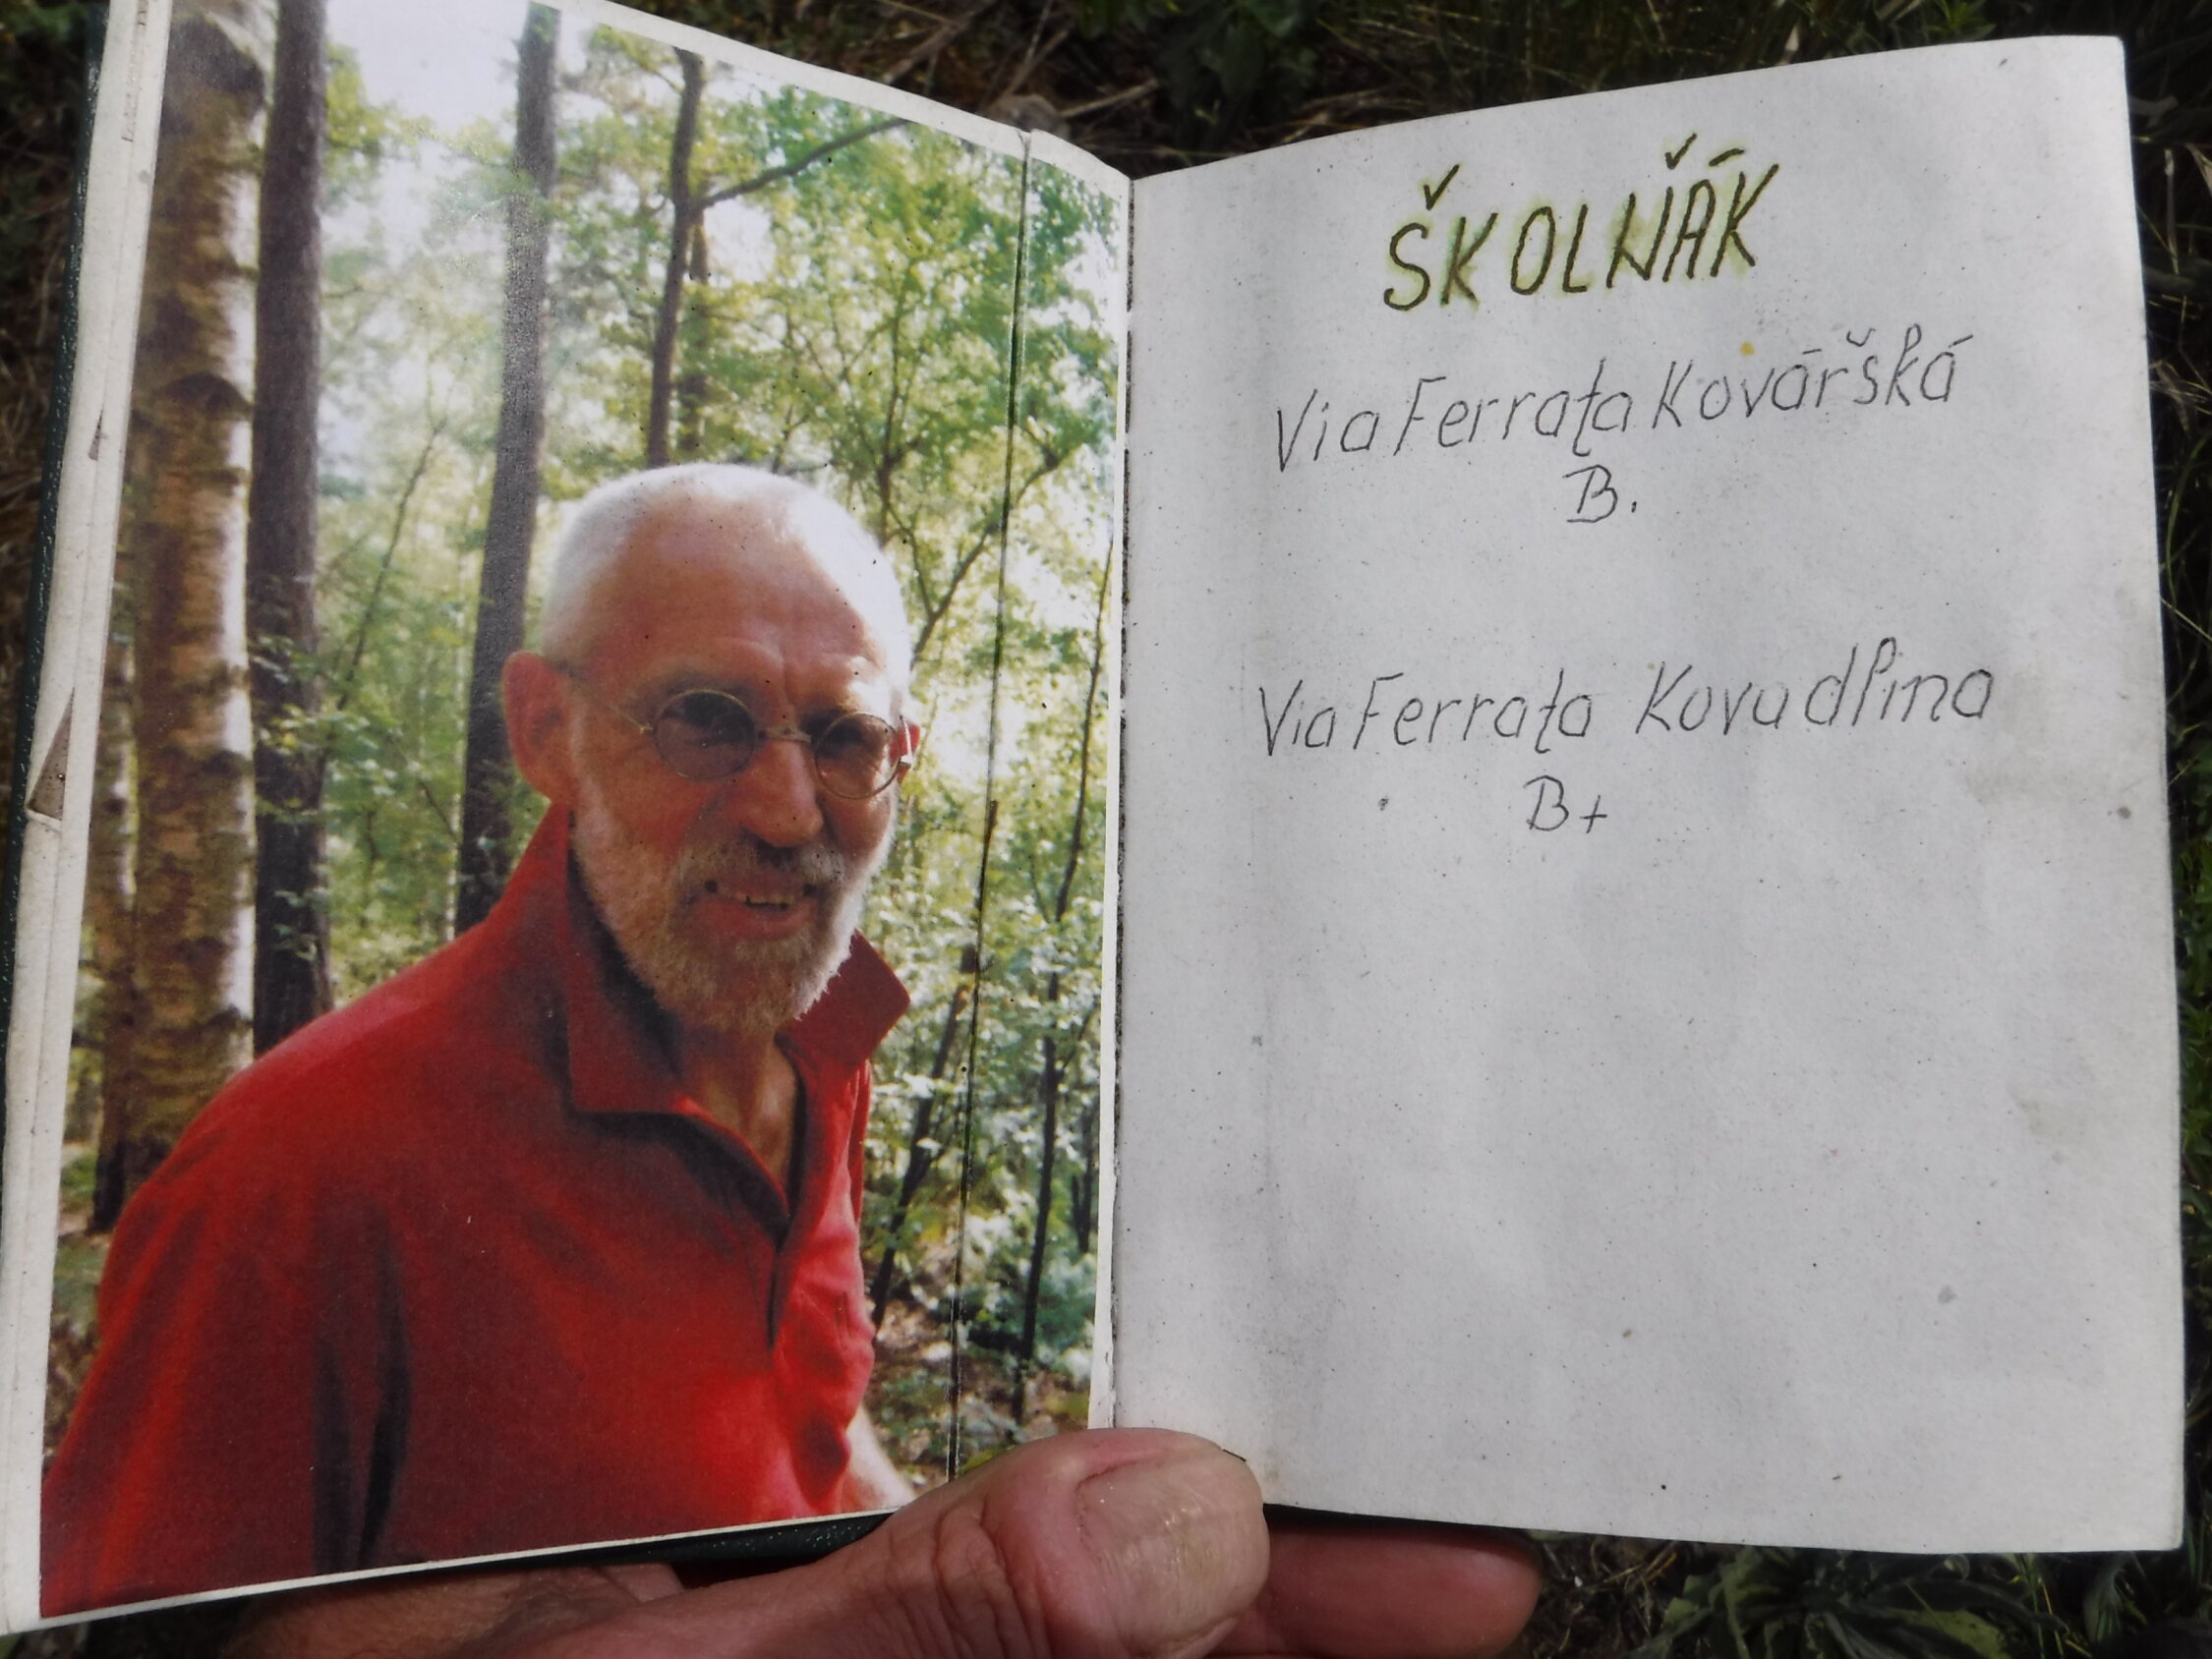 ŠKOLŇÁK
Via Ferrata Kovářská
B.
Via Ferrata Kovadlina
B+